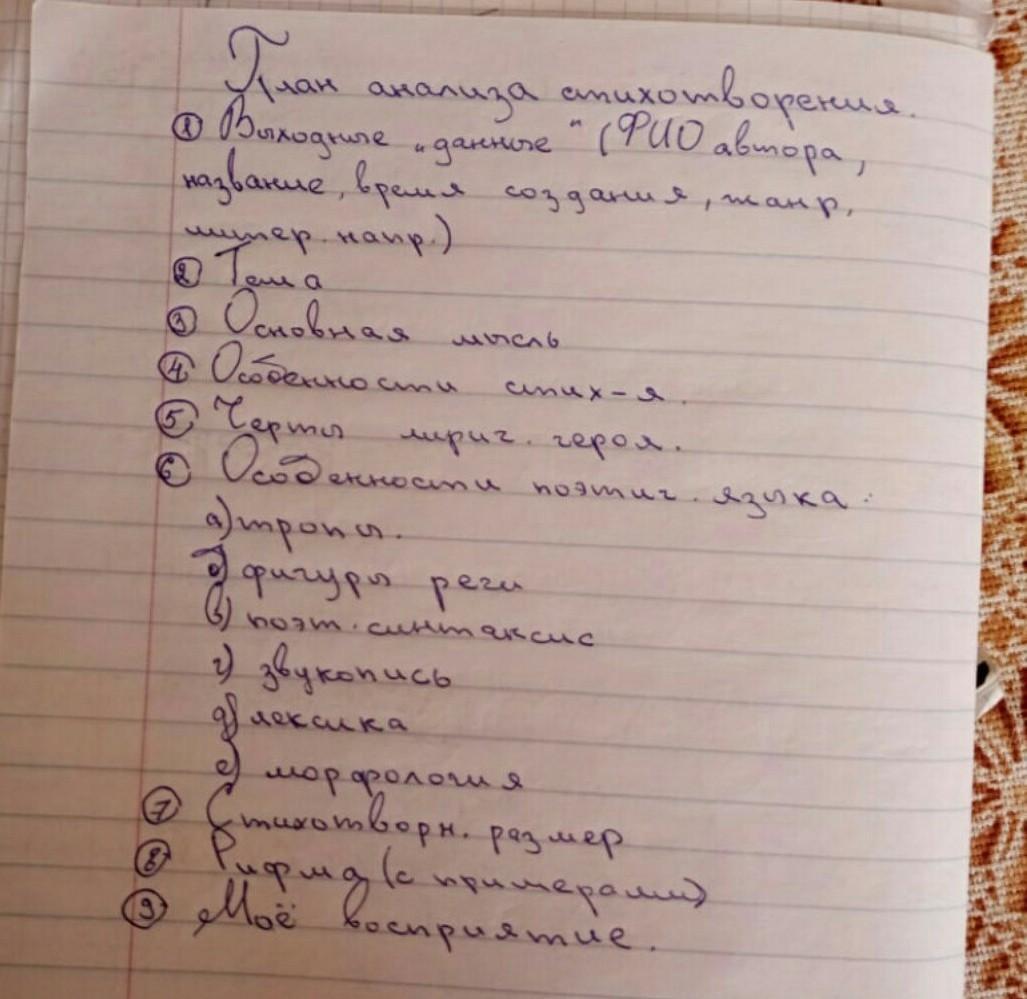 План анализа стихотворения.
① Выходные „данные" (ФИО автора,
название, время создания, жанр,
литер. напр.)
② Тема
③ Основная мысль
④ Особенности стих-я.
⑤ Черты лирич. героя.
⑥ Особенности поэтич. языка:
а) тропы.
б) фигуры речи
в) поэт. синтаксис
г) звукопись
д) лексика
е) морфология
⑦ Стихотворн. размер
⑧ Рифма (с примерами)
⑨ Моё восприятие.